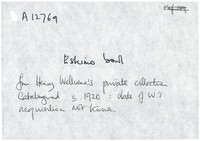 A12769
Eskimo bowl
from Henry Wellcome's private collection
Catalogued 3. 1920 : date of W's
acquisition not known.